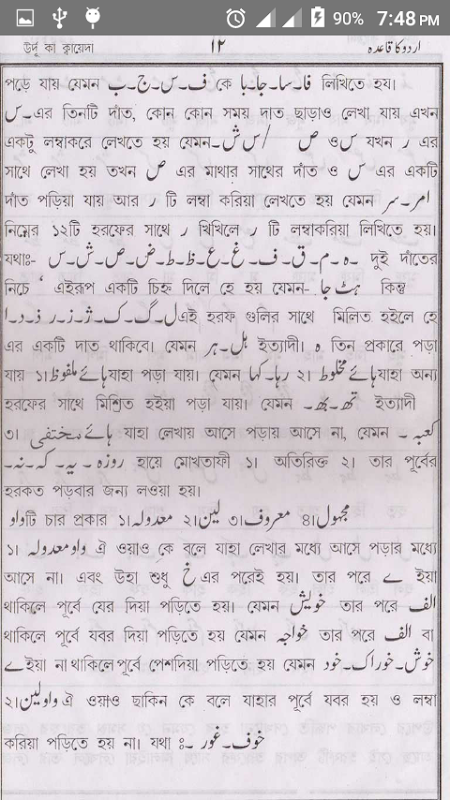 90% 7:48 PM
উর্দূ কা ক্বায়েদা ١٢ اردو کا قاعدہ
পড়ে যায় যেমন ف۔س۔ج۔ب কে فا۔سا۔جا۔با লিখিতে হয।
س۔ এর তিনটি দাঁত, কোন কোন সময় দাত ছাড়াও লেখা যায় এখন
একটু লম্বাকরে লেখতে হয় যেমন۔س ش/ ص ওس যখন ر এর
সাথে লেখা হয় তখন ص এর মাথার সাথের দাঁত ও س এর একটি
দাঁত পড়িয়া যায় আর ر টি লম্বা করিয়া লেখতে হয় যেমন امر۔سر
নিম্নের ১২টি হরফের সাথে ر খিখিলে ر টি লম্বাকরিয়া লিখিতে হয়।
যথাঃ- ہ۔م۔ق۔ف۔غ۔ع۔ظ۔ط۔ض۔ص۔ش۔س দুই দাঁতের
নিচে ‘ এইরূপ একটি চিহ্ন দিলে হে হয় যেমন- ہٹ جا কিন্তু
ل۔گ۔ک۔ژ۔ز۔ر۔ذ۔د۔اএই হরফ গুলির সাথে মিলিত হইলে হে
এর একটি দাত থাকিবে। যেমন ہل۔ہر ইত্যাদী। ہ তিন প্রকারে পড়া
যায় ১।ہائے ملفوظযাহা পড়া যায়। যেমন رہا۔کہا ২। ہائے مخلوطযাহা অন্য
হরফের সাথে মিশ্রিত হইয়া পড়া যায়। যেমন تھ۔بھ۔ ইত্যাদী
৩। ہائے مختفی যাহা লেখায় আসে পড়ায় আসে না, যেমন کعبہ۔
روزہ۔یہ۔کہ۔نہ۔ হায়ে মোখতাফী ১। অতিরিক্ত ২। তার পূর্বের
হরকত পড়বার জন্য লওয়া হয়।
واوটি চার প্রকার ১।معدولہ ২।لین ৩।معروف ৪।مجہول
১। واو معدولہ ঐ ওয়াও কে বলে যাহা লেখার মধ্যে আসে পড়ার মধ্যে
আসে না। এবং উহা শুধু خ এর পরেই হয়। তার পরে ے ইয়া
থাকিলে পূর্বে যের দিয়া পড়িতে হয়। যেমন خویش তার পরে الف
থাকিলে পূর্বে যবর দিয়া পড়িতে হয় যেমন خواجہ তার পরে الف বা
ےইয়া না থাকিলে পূর্বে পেশদিয়া পড়িতে হয় যেমন خوش۔خوراک۔خود
২।واولین ঐ ওয়াও ছাকিন কে বলে যাহার পূর্বে যবর হয় ও লম্বা
করিয়া পড়িতে হয় না। যথা ঃ- خوف۔غور